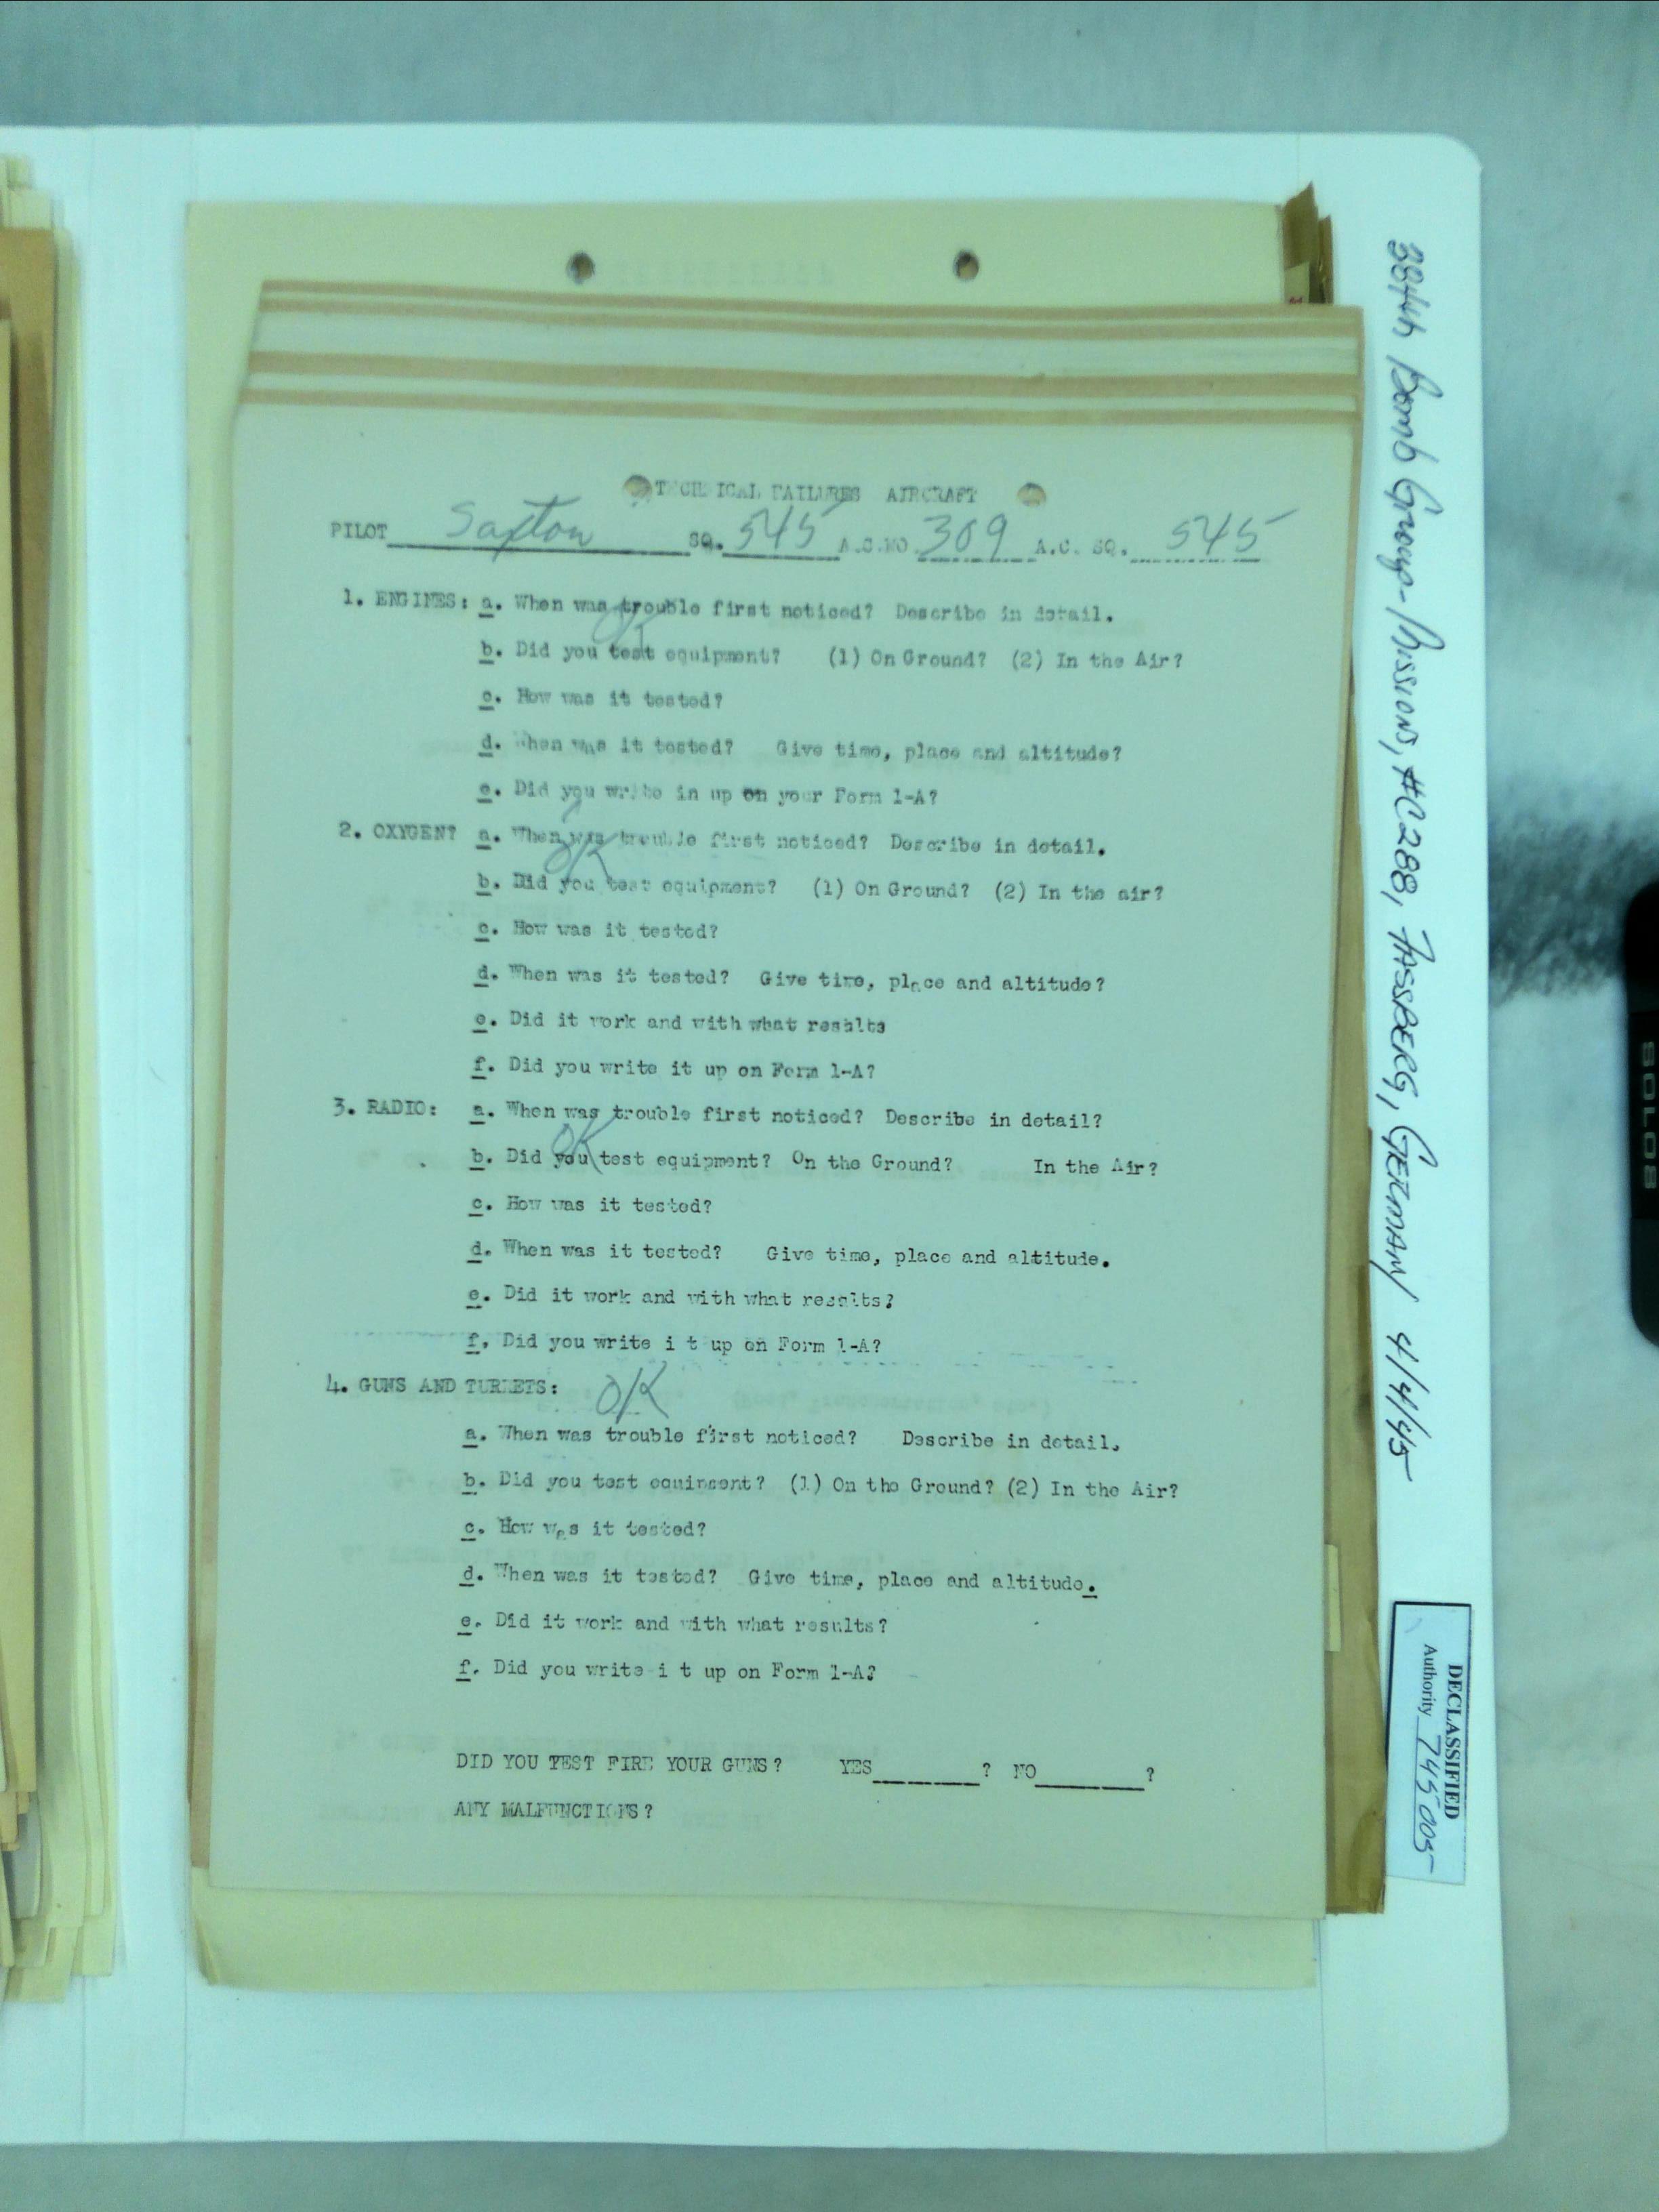 TECHNICAL FAILURES AIRCRAFT
PILOT Saxton SQ. 545 A.C.NO. 309 A.C. SQ. 545
1. ENGINES: a. When was trouble first noticed? Describe in detail.
OK
b. Did you test equipment? (1) On Ground? (2) In the Air?
c. How was it tested?
d. When was it tested? Give time, place and altitude?
e. Did you write in up on your Form 1-A?
2. OXYGEN? a. When was trouble first noticed? Describe in detail.
OK
b. Did you test equipment? (1) On Ground? (2) In the air?
c. How was it tested?
d. When was it tested? Give time, place and altitude?
e. Did it work and with what results
f. Did you write it up on Form 1-A?
3. RADIO: a. When was trouble first noticed? Describe in detail?
OK
b. Did you test equipment? On the Ground? In the Air?
c. How was it tested?
d. When was it tested? Give time, place and altitude.
e. Did it work and with what results?
f. Did you write i t up on Form 1-A?
4. GUNS AND TURRETS: OK
a. When was trouble first noticed? Describe in detail.
b. Did you test equipment? (1) On the Ground? (2) In the Air?
c. How was it tested?
d. When was it tested? Give time, place and altitude.
e. Did it work and with what results?
f. Did you write i t up on Form 1-A?
DID YOU TEST FIRE YOUR GUNS? YES________? NO________?
ANY MALFUNCTIONS?
384th Bomb Group-Mission, #C288, FASSBERG, GERMANY 4/4/45
DECLASSIFIED
Authority 745005
SOLOS